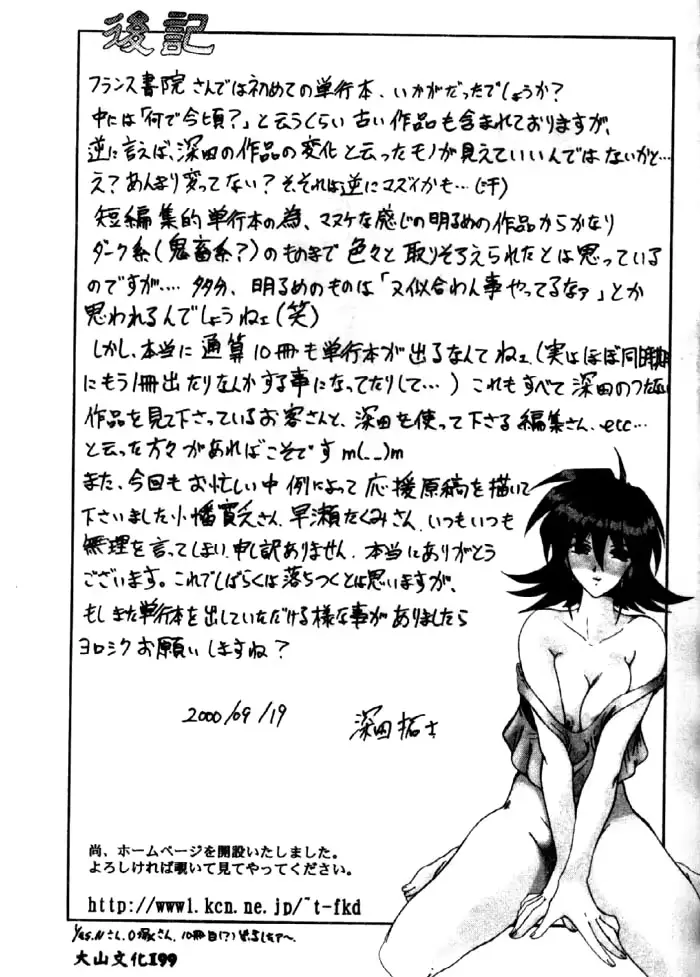 後記
フランス書院さんでは初めての単行本、いかがだったでしょうか?
中には「何で今頃?」と云うくらい古い作品も含まれておりますが、
逆に言えば、深田の作品の変化と云ったモノが見えていいんではないかと…
え?あんまり変ってない?そ、それは逆にマズイかも…(汗)
短編集的単行本の為、マヌケな感じの明るめの作品からかなり
ダーク系(鬼畜系?)のものまで色々と取りそろえられたとは思っている
のですが…. 多分、明るめのものは「又似合わん事やってるなァ」とか
思われるんでしょうねェ(笑)
しかし、本当に通算10冊も単行本が出るなんてねェ、(実はほぼ同時期
にもう1冊出たりなんかする事になってたりして…)これもすべて深田のつたない
作品を見て下さっているお客さんと、深田を使って下さる編集さん、etc…
と云った方々があればこそです m(__)m
また、今回もお忙しい中例によって応援原稿を描いて
下さいました小幡寛之さん、早瀬たくみさん、いつもいつも
無理を言ってしまい申し訳ありません、本当にありがとう
ございます。これでしばらくは落ちつくとは思いますが、
もしまた単行本を出していただける様な事がありましたら
ヨロシクお願いしますね?
2000/09/19
深田拓士
尚、ホームページを開設いたしました。
よろしければ覗いて見てやってください。
http://www1.kcn.ne.jp/~t-fkd
10冊目(?)
大山文化199